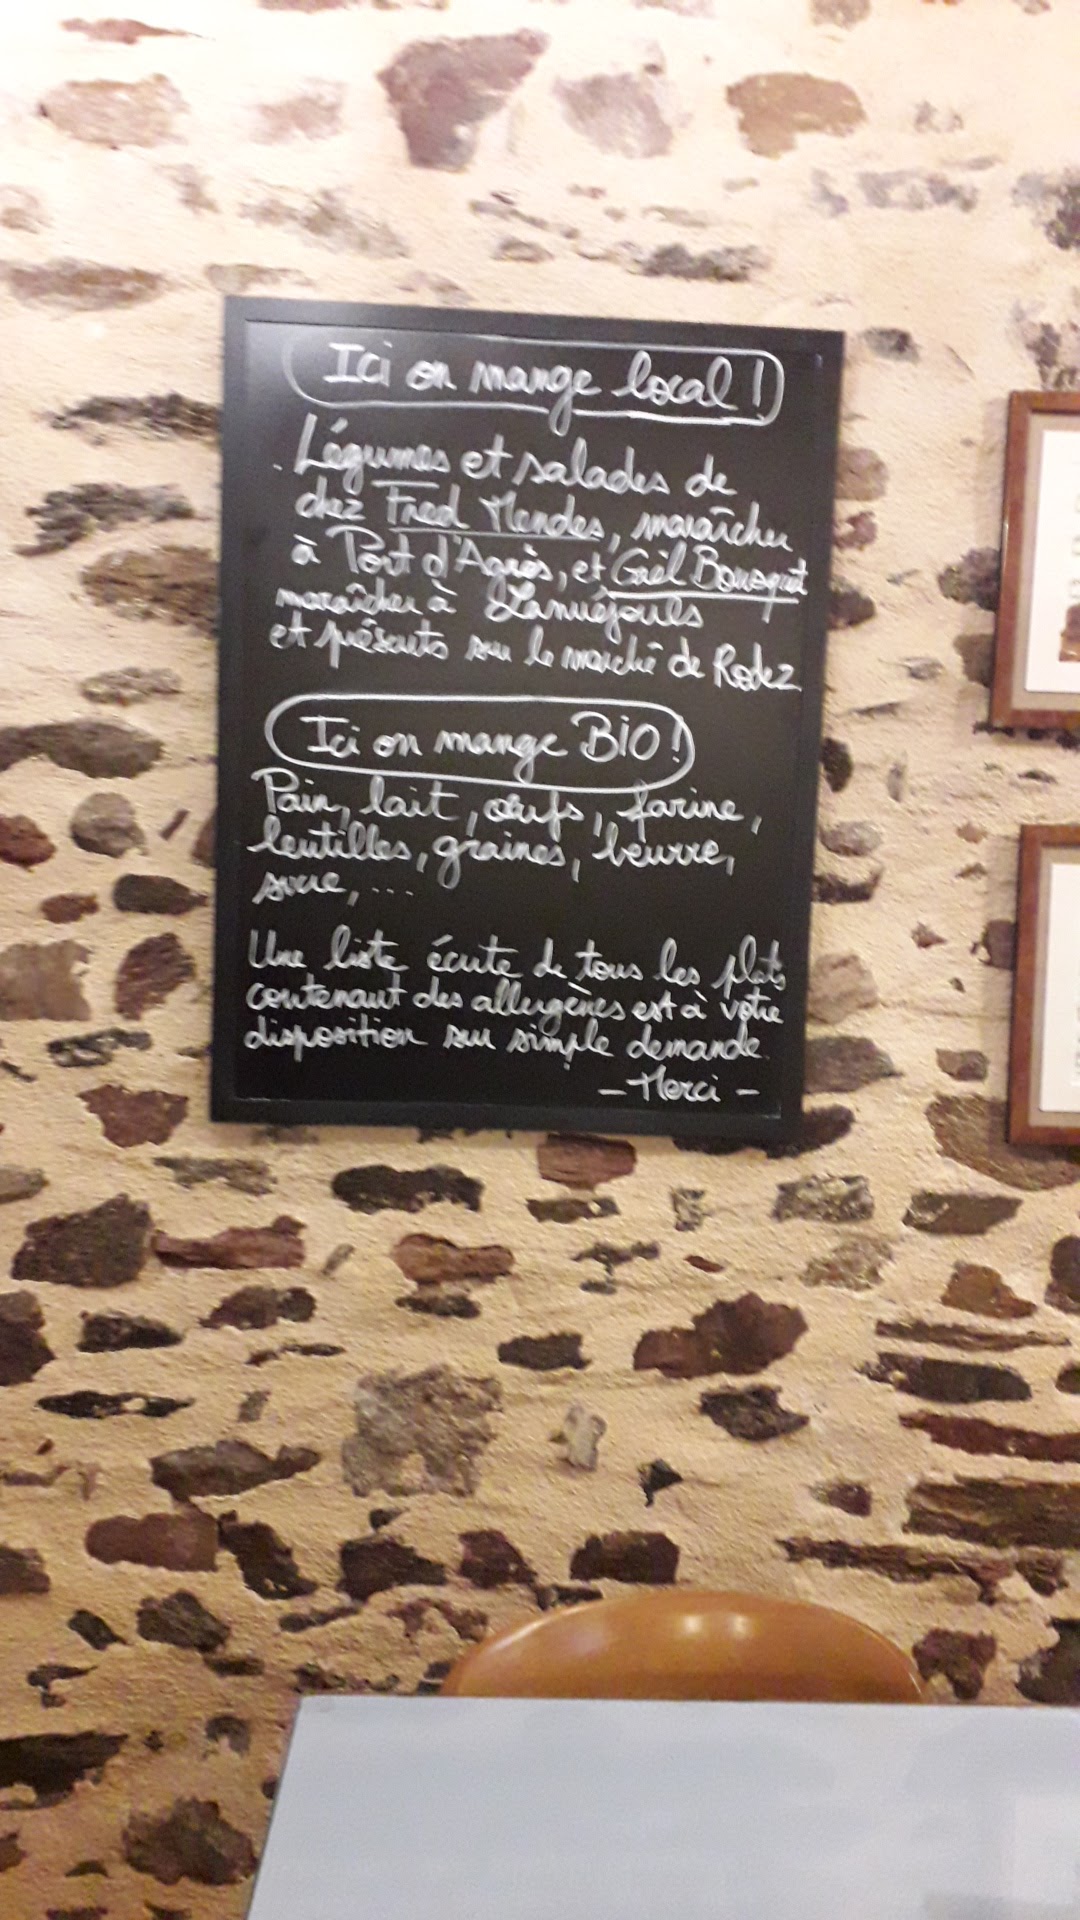 Ici on mange local !
. Légumes et salades de
chez Fred Mendes, maraîcher
à Port d'Agrès, et Gaël Bousquet
maraîcher à Lanuéjouls
et présents sur le marché de Rodez
Ici on mange BIO !
Pain, lait, œufs, farine,
lentilles, graines, beurre,
sucre, ...
Une liste écrite de tous les plats
contenant des allergènes est à votre
disposition sur simple demande.
- Merci -